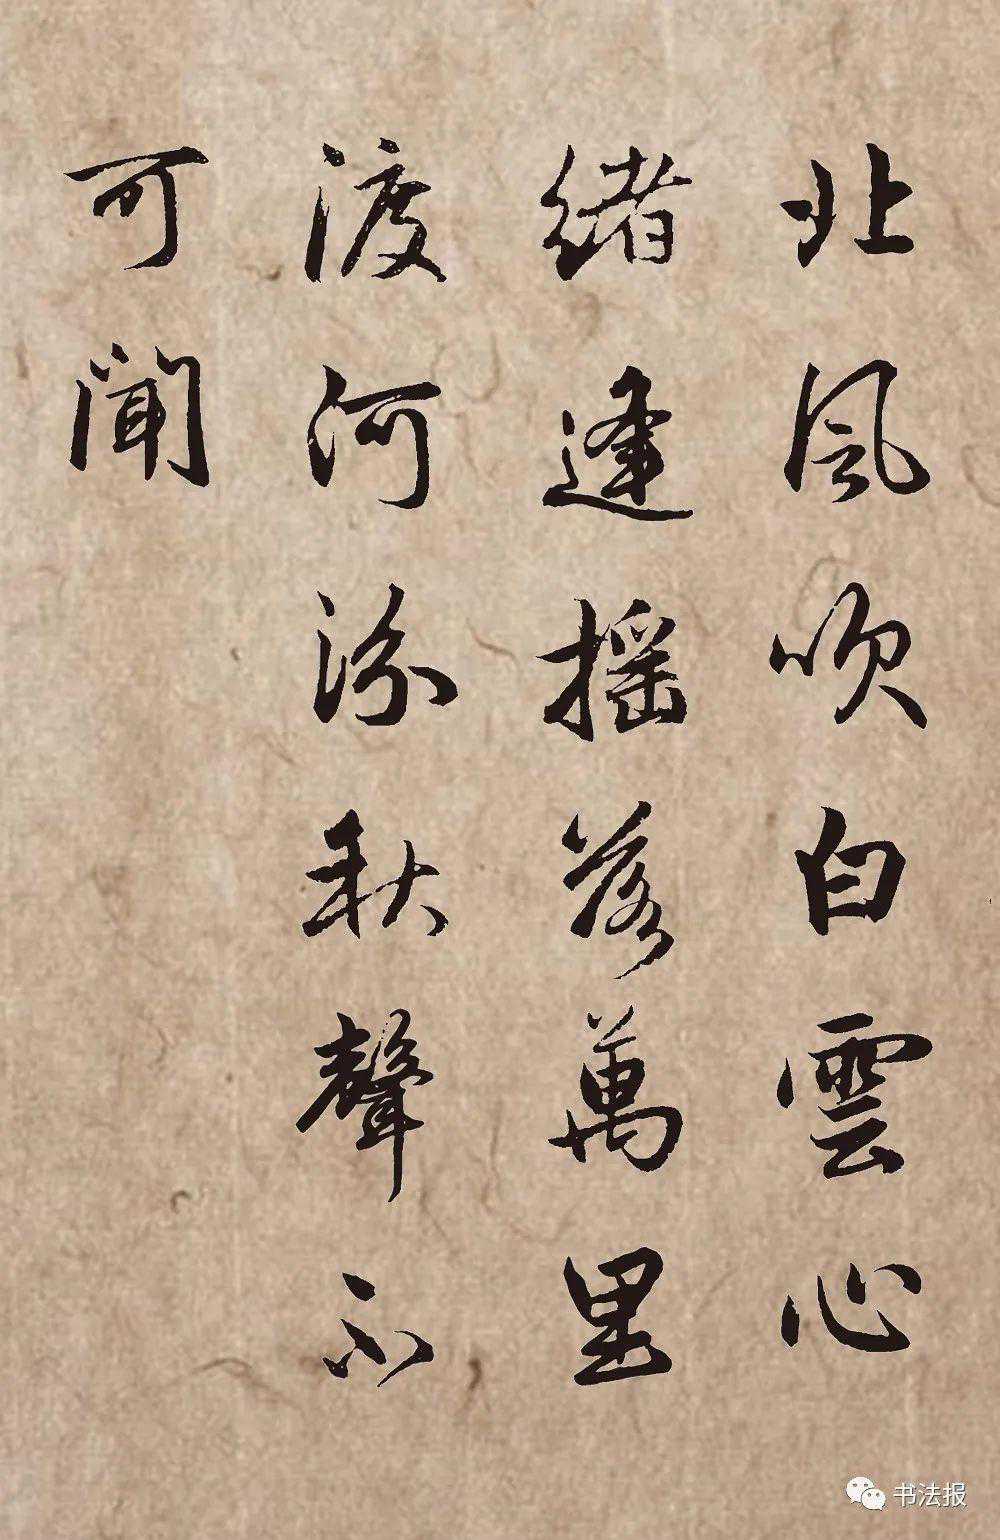 北風吹白雲心
緒逢摇落萬里
渡河汾秋聲不
可聞
书法报